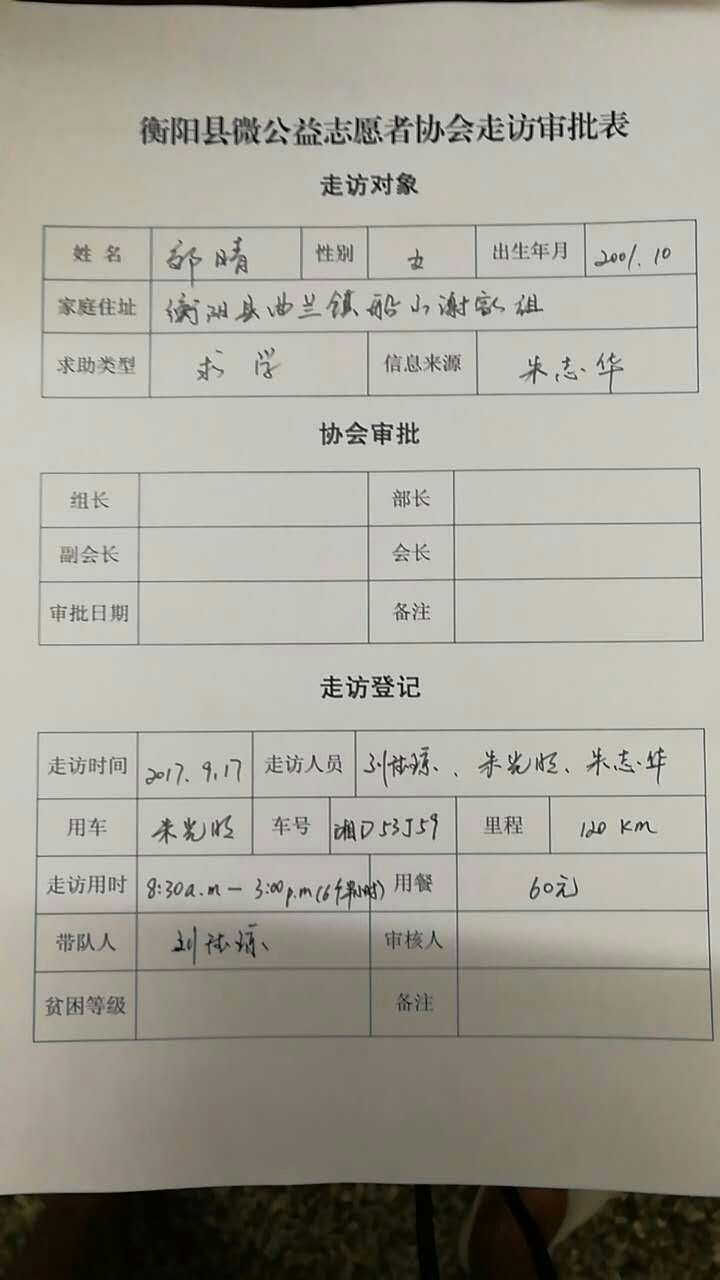 衡阳县微公益志愿者协会走访审批表
走访对象
姓名 邹晴 性别 女 出生年月 2001.10
家庭住址 衡阳县曲兰镇船山谢家组
求助类型 求学 信息来源 朱志华
协会审批
组长 部长
副会长 会长
审批日期 备注
走访登记
走访时间 2017.9.17 走访人员 刘 琼、朱光明、朱志华
用车 朱光明 车号 湘D53J59 里程 120 Km
走访用时 8:30a.m — 3:00p.m(6个半小时) 用餐 60元
带队人 刘 琼 审核人
贫困等级 备注